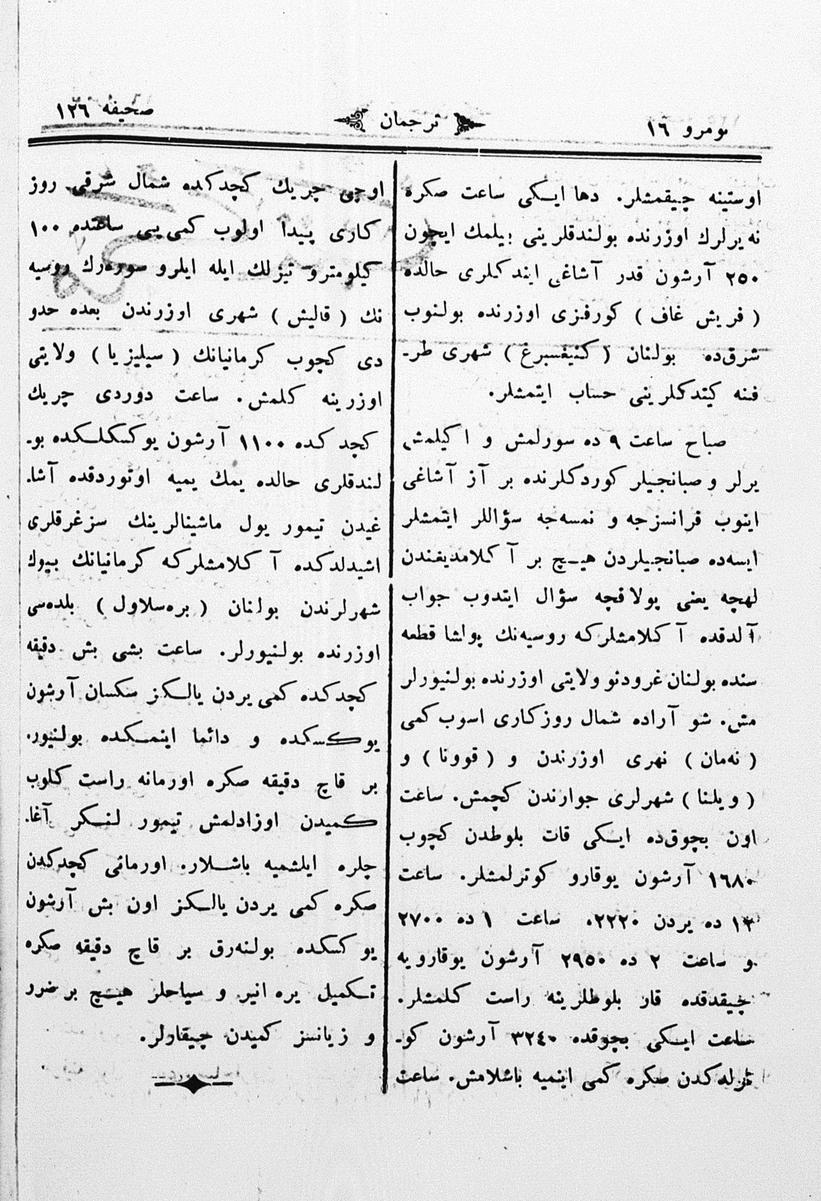 نومرو ١٦
ترجمان
صحیفه ١٢٦
اوستینه چیقمشلر. دها ایـکی ساعت صکره
نه یرلرك اوزرنده بولندقلرینی بیلمك ایچون
٢٥٠ آرشون قدر آشاغی ایندکلری حالده
( فریش غاف ) کورفزی اوزرنده بولنوب
شرق‌ده بولنان ( کنیفسبرغ ) شهری طر۔
فنه کیتدکلرینی حساب ایتمشلر.
صباح ساعت ٩ ده سورلمش و اکیلمش
یرلر و صبانجیلر کوردکلرنده بر آز آشاغی
اینوب فرانسزجه و نمسه‌جه سؤاللر ایتمشلر
ایسه‌ده صبانجیلردن هیـچ بر آکلامدیغندن
لهچه یعنی پولاقچه سؤال ایتدوب جواب
آلدقده آکلامشلرکه روسیه‌نك پولشا قطعه
سنده بولنان غرودنو ولایتی اوزرنده بولنیورلر
مش. شو آراده شمال روزکاری اسوب کمی
( نه‌مان ) نهری اوزرندن و ( قوونا ) و
( ویلنا ) شهرلری جوارندن کچمش. ساعت
اون بچوق‌ده ایـکی قات بلوطدن کچوب
١٦٨٠ آرشون یوقارو کوترلمشلر. ساعت
١٢ ده یردن ٢٢٢٠، ساعت ١ ده ٢٧٠٠
و ساعت ٢ ده ٢٩٥٠ آرشون یوقارویه
چیقدقده قار بلوطلرینه راست کلمشلر.
ساعت ایـکی بچوقده ٣٢٤٠ آرشون کو۔
ترله‌کدن صکره کمی اینمیه باشلامش. ساعت
اوچی چریك کچدکده شمال شرقی روز
کاری پیدا اولوب کمی‌یی ساعتده ١٠٠
کیلومترو تیزلك ایله ایلرو سوره‌رك روسیه
نك ( قالیش ) شهری اوزرندن بعده حدو
دی کچوب کرمانیانك ( سیلیزیا ) ولایتی
اوزرینه کلمش. ساعت دوردی چریك
کچدکده ١١٠٠ آرشون یوکسکلـکده بو۔
لندقلری حالده یمك یمیه اوتوردقده آشا۔
غیدن تیمور یول ماشینالرینك سزغرقلری
اشیدلدکده آکلامشلرکه کرمانیانك بیوك
شهرلرندن بولنان ( بره‌سلاول ) بلده‌سی
اوزرنده بولنیورلر. ساعت بشی بش دقیقه
کچدکده کمی یردن یالـکز سکسان آرشون
یوکسکده و دائما اینمـکده بولنیور.
بر قاچ دقیقه صکره اورمانه راست کلوب
کمیدن اوزادلمش تیمور لنـکر آغا۔
چلره ایلشمیه باشـلار. اورمانی کچدکدن
صکره کمی یردن یالـکز اون بش آرشون
یوکسکده بولنه‌رق بر قاچ دقیقه صکره
تـکمیل یره انیر و سیاحلر هیـچ بر ضرو
و زیانسز کمیدن چیقاولر.